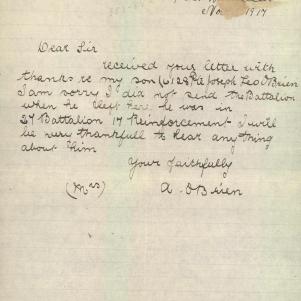 Nov 1917
Dear Sir
received your letter with
thanks re my son Joseph Leo O'Brien
I am sorry I did not send the Battalion
when he left here he was in
27 Battalion 17 Reinforcement I will
be very thankfull to hear any thing
about him
Your faithfully
(Mrs) A. O'Brien